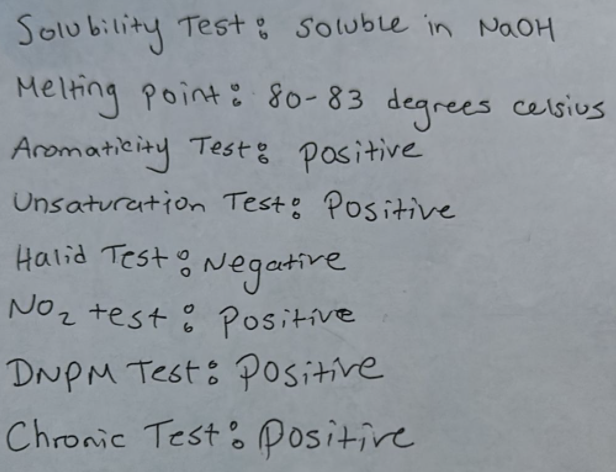 Solubility Test: soluble in NaOH
Melting point: 80-83 degrees celsius
Aromaticity Test: positive
Unsaturation Test: Positive
Halid Test: Negative
NO2 test: Positive
DNPM Test: Positive
Chronic Test: Positive